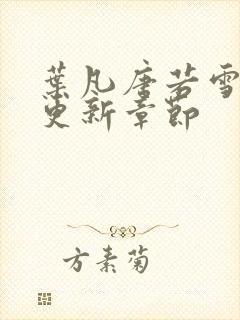 葉凡唐若雪
更新章節
方素菊